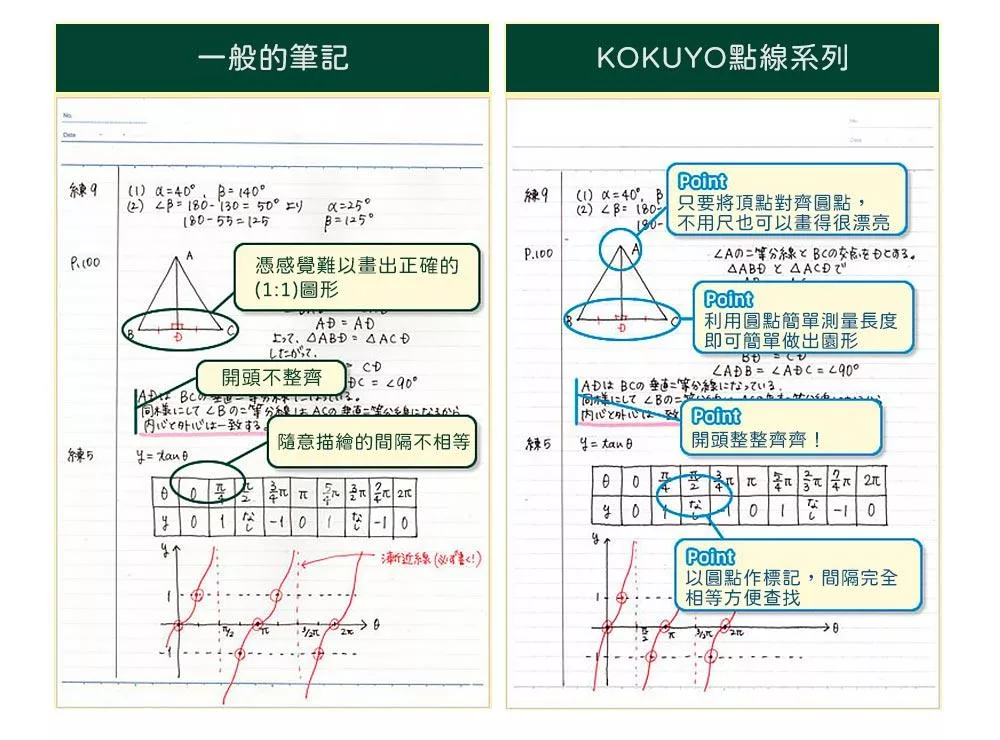 一般的筆記
No.
Date
練9
(1) α=40°, β=140°
(2) ∠β=180-130=50°より α=25°
180-55=125 β=125°
P.100
A
憑感覺難以畫出正確的
(1:1)圖形
B
C
D
AD=AD
よって、△ABD=△ACD
したがって、
開頭不整齊
CD
DC=∠90°
ADは BCの垂直二等分線になっている。
同様にして∠Bの二等分線は ACの垂直二等分線になるから
内心と外心は一致する。
隨意描繪的間隔不相等
練5
y=tanθ
θ 0 π/4 π/2 3/4π π 5/4π 3/2π 7/4π 2π
y 0 1 なし -1 0 1 なし -1 0
y
漸近線(必ず書く!)
1
π/2 π 3/2π 2π θ
-1
KOKUYO點線系列
No.
Date
練9
(1) α=40°, β
(2) ∠β=180-
180-
Point
只要將頂點對齊圓點,
不用尺也可以畫得很漂亮
P.100
A
∠Aの二等分線と BCの交点をDとする。
△ABDと△ACDで
Point
利用圓點簡單測量長度
即可簡單做出園形
B
C
D
BD=CD
∠ADB=∠ADC=∠90°
ADは BCの垂直二等分線になっている。
同様にして∠Bの
内心と外心は一致
Point
開頭整整齊齊!
練5
y=tanθ
θ 0 π/4 π/2 3/4π π 5/4π 2/3π 7/4π 2π
y 0 1 なし -1 0 1 なし -1 0
Point
以圓點作標記,間隔完全
相等方便查找
y
1
π/2 π 3/2π 2π θ
-1